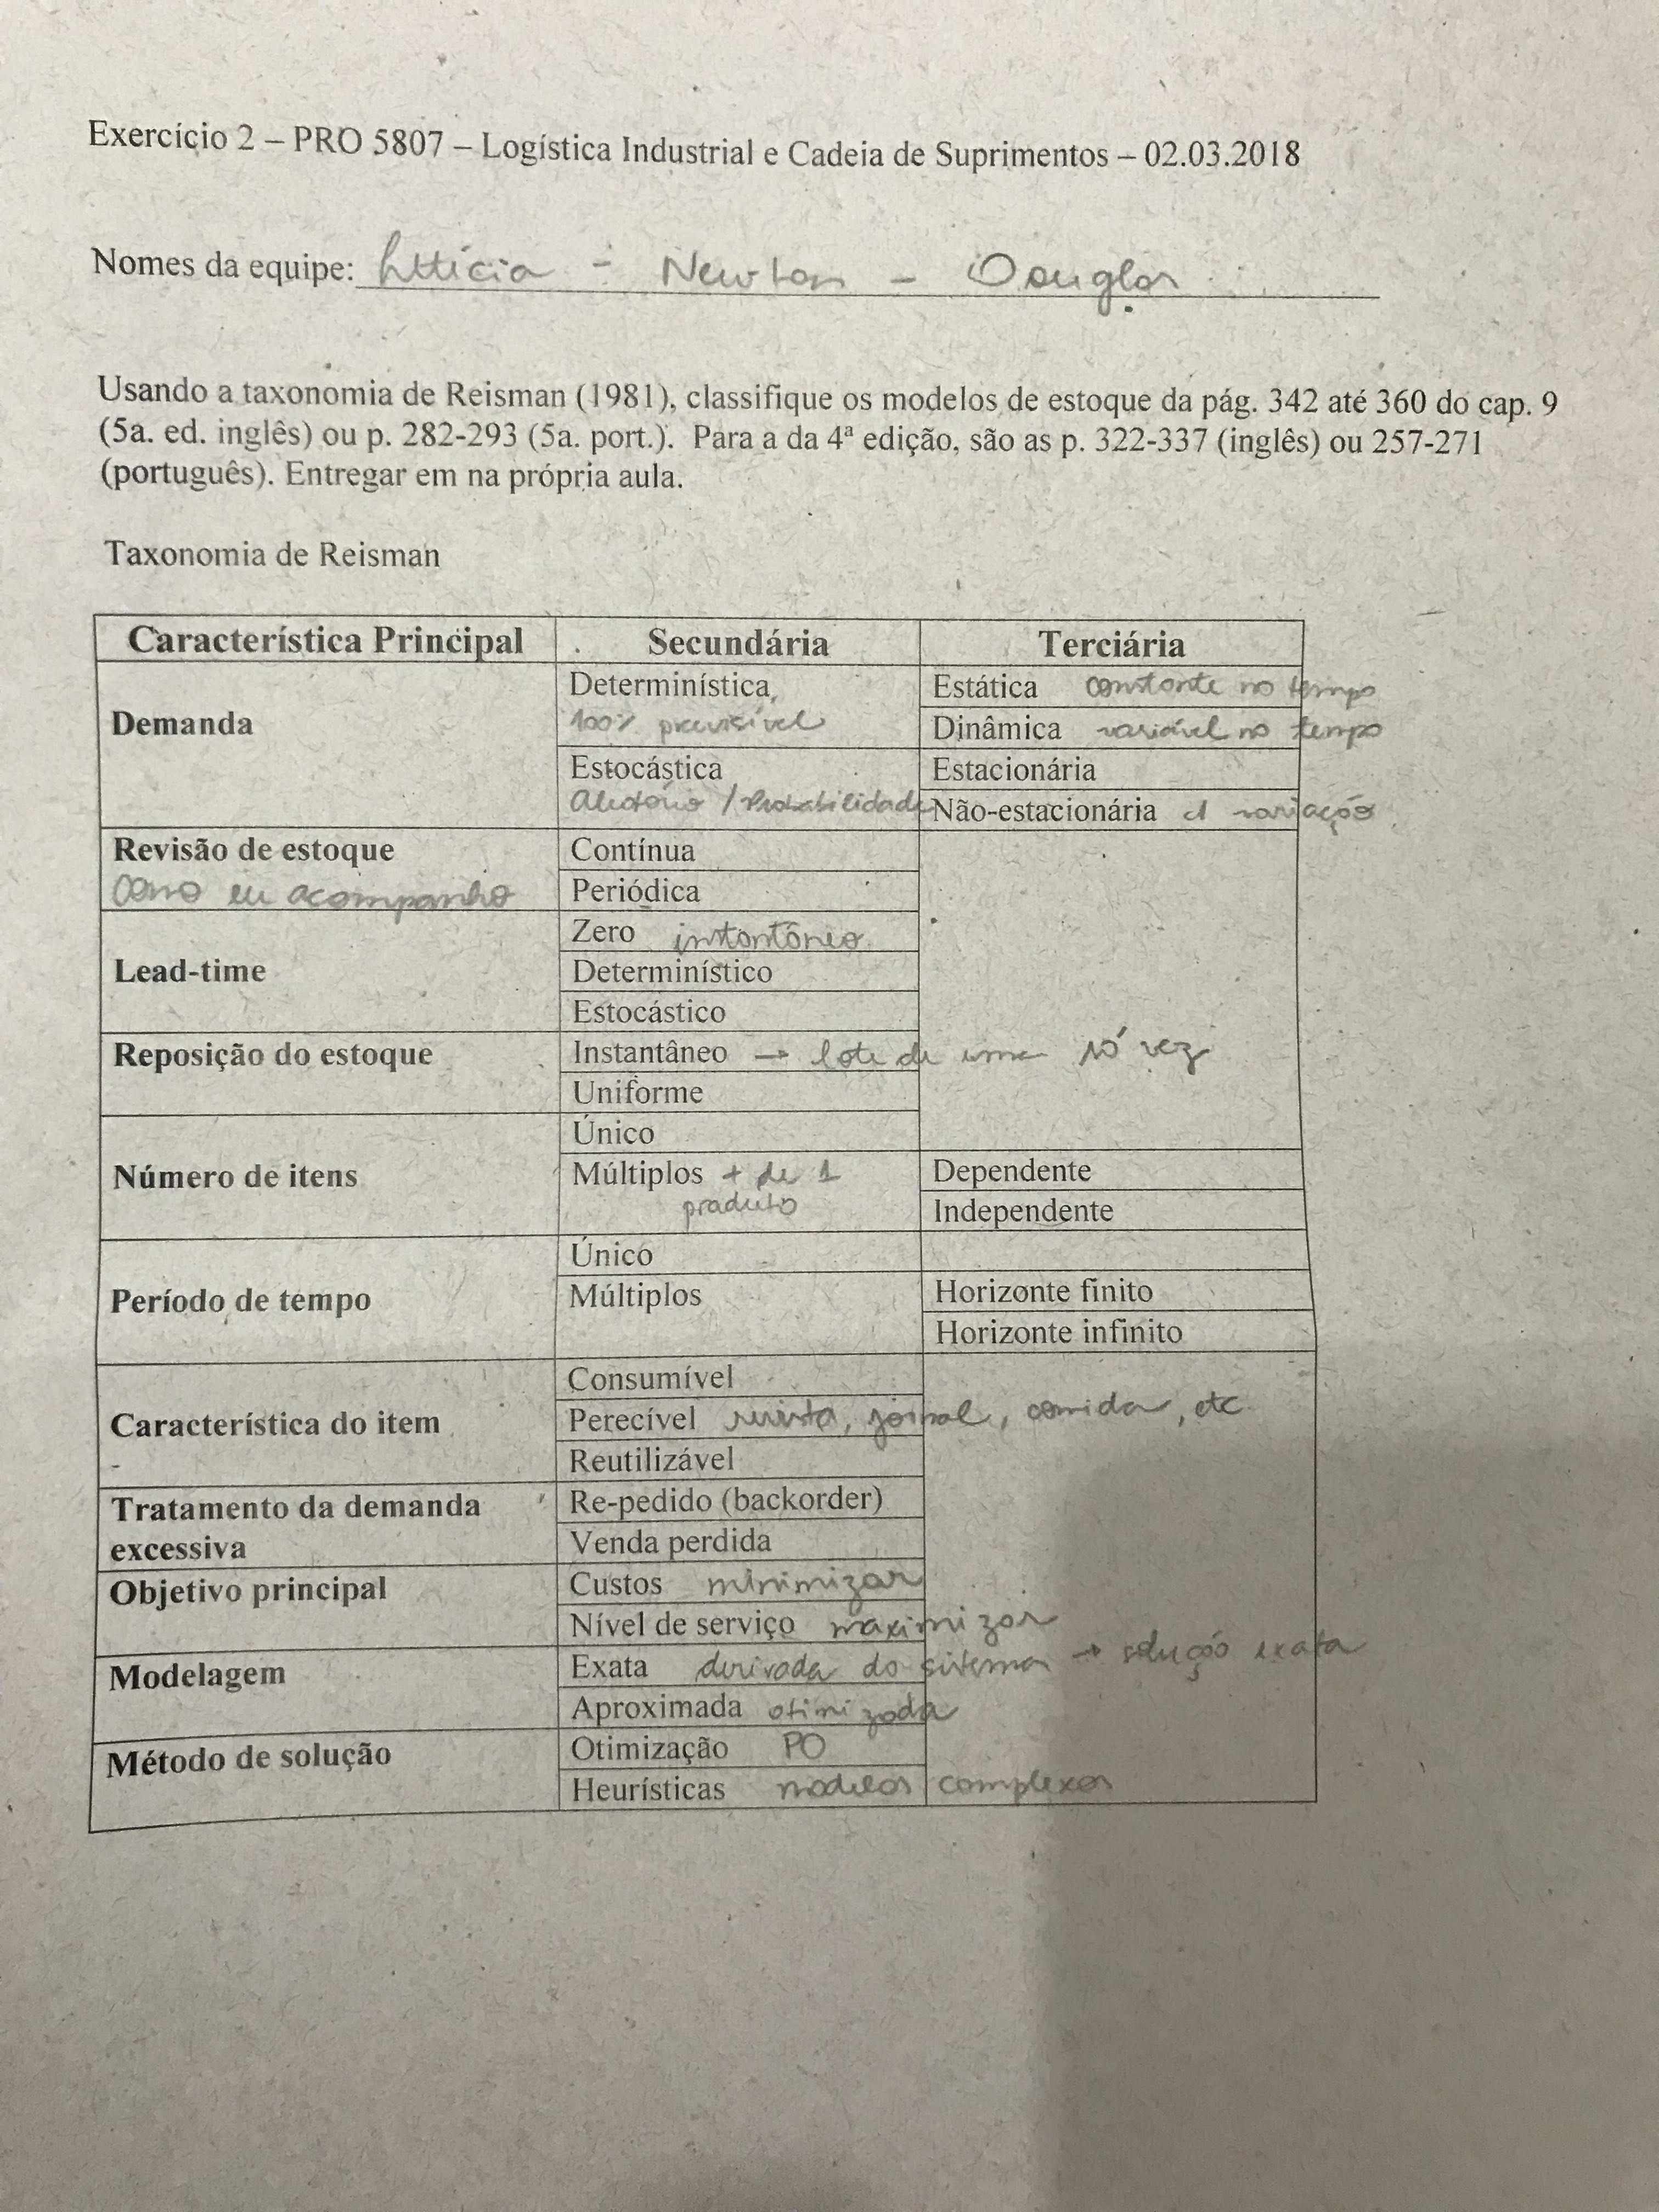 Exercício 2 – PRO 5807 – Logística Industrial e Cadeia de Suprimentos – 02.03.2018
Nomes da equipe: Letticia - Newton - Douglas
Usando a taxonomia de Reisman (1981), classifique os modelos de estoque da pág. 342 até 360 do cap. 9
(5a. ed. inglês) ou p. 282-293 (5a. port.). Para a da 4ª edição, são as p. 322-337 (inglês) ou 257-271
(português). Entregar em na própria aula.
Taxonomia de Reisman
Característica Principal Secundária Terciária
Demanda
Determinística,
100% previsível
Estática constante no tempo
Dinâmica variável no tempo
Estocástica
Aleatório / Probabilidade
Estacionária
Não-estacionária c/ variação
Revisão de estoque
Como eu acompanho
Contínua
Periódica
Lead-time
Zero instantâneo
Determinístico
Estocástico
Reposição do estoque
Instantâneo → lote de uma só vez
Uniforme
Número de itens
Único
Múltiplos + de 1
produto
Dependente
Independente
Período de tempo
Único
Múltiplos
Horizonte finito
Horizonte infinito
Característica do item
Consumível
Perecível revista, jornal, comida, etc
Reutilizável
Tratamento da demanda
excessiva
Re-pedido (backorder)
Venda perdida
Objetivo principal
Custos minimizar
Nível de serviço maximizar
Modelagem
Exata derivada do sistema → solução exata
Aproximada otimizada
Método de solução
Otimização PO
Heurísticas modelos complexos